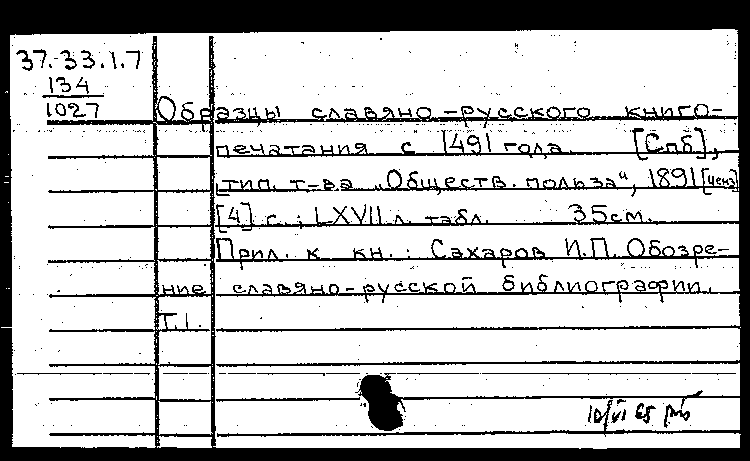 37.33.1.7
134
1027
Образцы славяно-русского книго-
печатания с 1491 года. [Спб],
тип. т-ва „Обществ. польза“, 1891 [ценз]
[4] с.; LXVII л. табл. 35см.
Прил. к кн.: Сахаров И.П. Обозре-
ние славяно-русской библиографии.
Т.1.
10/VI 65